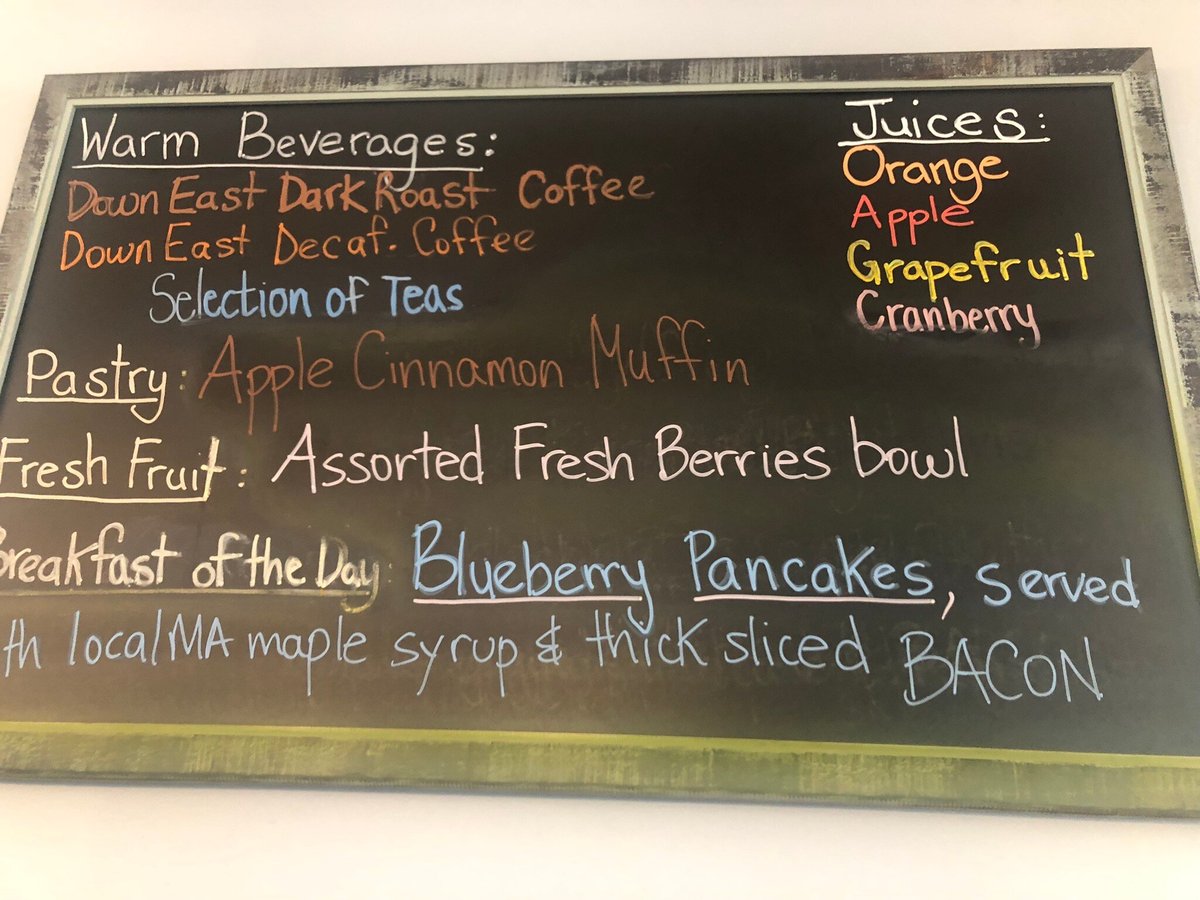 Warm Beverages:
Down East Dark Roast Coffee
Down East Decaf. Coffee
Selection of Teas
Juices:
Orange
Apple
Grapefruit
Cranberry
Pastry: Apple Cinnamon Muffin
Fresh Fruit: Assorted Fresh Berries bowl
Breakfast of the Day: Blueberry Pancakes, served
th local MA maple syrup & thick sliced BACON